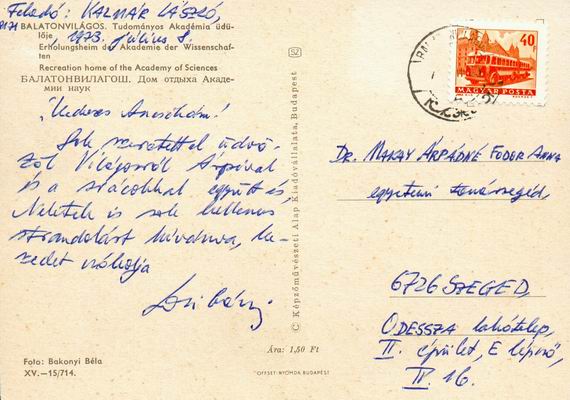 Feladó: KALMÁR LÁSZLÓ,
8171
BALATONVILÁGOS. Tudományos Akadémia üdü-
lője, 1973. július 8.
Erholungsheim der Akademie der Wissenschaf-
ten
Recreation home of the Academy of Sciences
БАЛАТОНВИЛАГОШ. Дом отдыха Акаде-
мии наук
Kedves Ancsókám!
Sok szeretettel üdvö-
zöl Világosról Árpival
és a srácokkal együtt és
Nektek is sok kellemes
strandolást kívánva, ke-
zedet csókolja
Laci bácsi
Foto: Bakonyi Béla
XV.—15/714.
SZ
© Képzőművészeti Alap Kiadóvállalata, Budapest
Ára: 1,50 Ft
OFFSET-NYOMDA BUDAPEST
40
f
MAGYAR POSTA
DR. MAKAY ÁRPÁDNÉ FODOR ANNA
egyetemi tanársegéd,
6726 SZEGED,
ODESSZA lakótelep,
II. épület, E lépcső,
IV. 16.